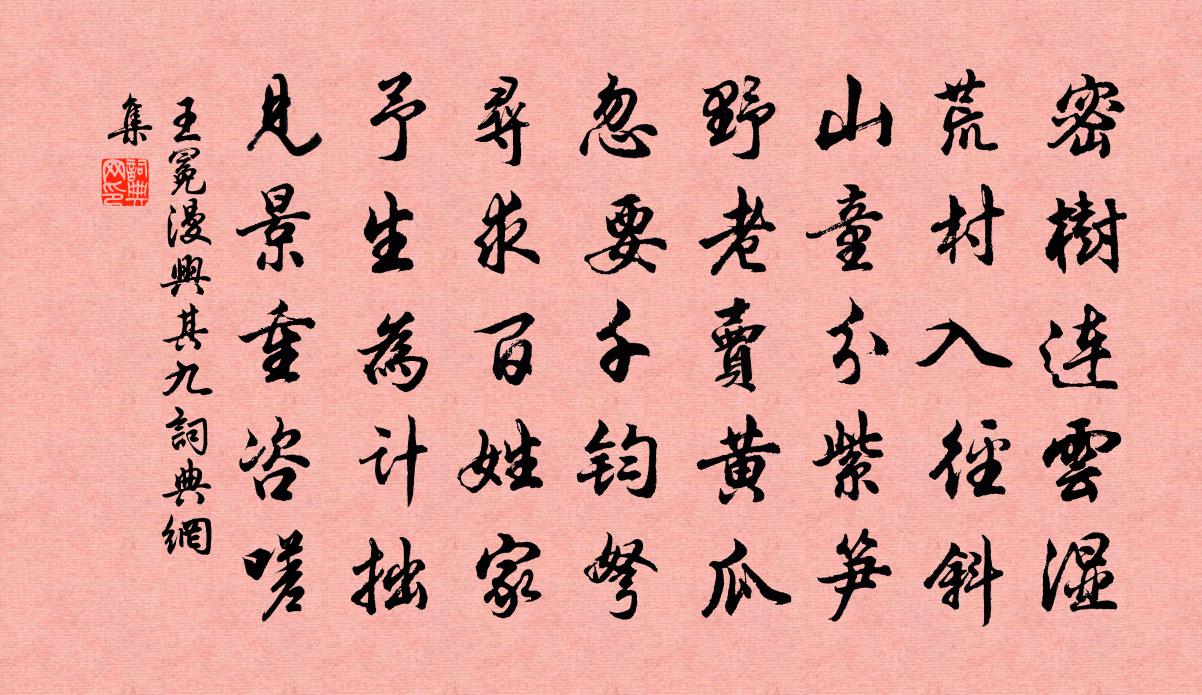 密樹連雲濕
荒村入徑斜
山童分紫笋
野老賣黃瓜
忽要千鈞弩
尋求百姓家
予生為計拙
見景重咨嗟
王冕漫興其九詞典網
集
詞典
网印